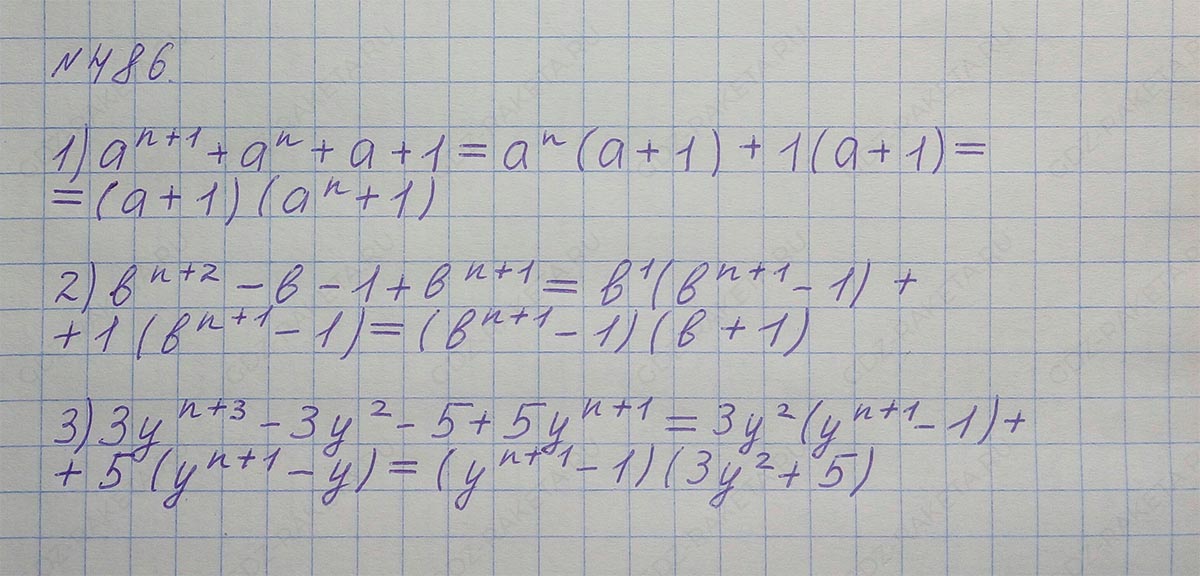 №486.
1) aⁿ⁺¹ + aⁿ + a + 1 = aⁿ(a + 1) + 1(a + 1) =
= (a + 1)(aⁿ + 1)
2) вⁿ⁺² - в - 1 + вⁿ⁺¹ = в¹(вⁿ⁺¹ - 1) +
+ 1(вⁿ⁺¹ - 1) = (вⁿ⁺¹ - 1)(в + 1)
3) 3yⁿ⁺³ - 3y² - 5 + 5yⁿ⁺¹ = 3y²(yⁿ⁺¹ - 1) +
+ 5(yⁿ⁺¹ - y) = (yⁿ⁺¹ - 1)(3y² + 5)